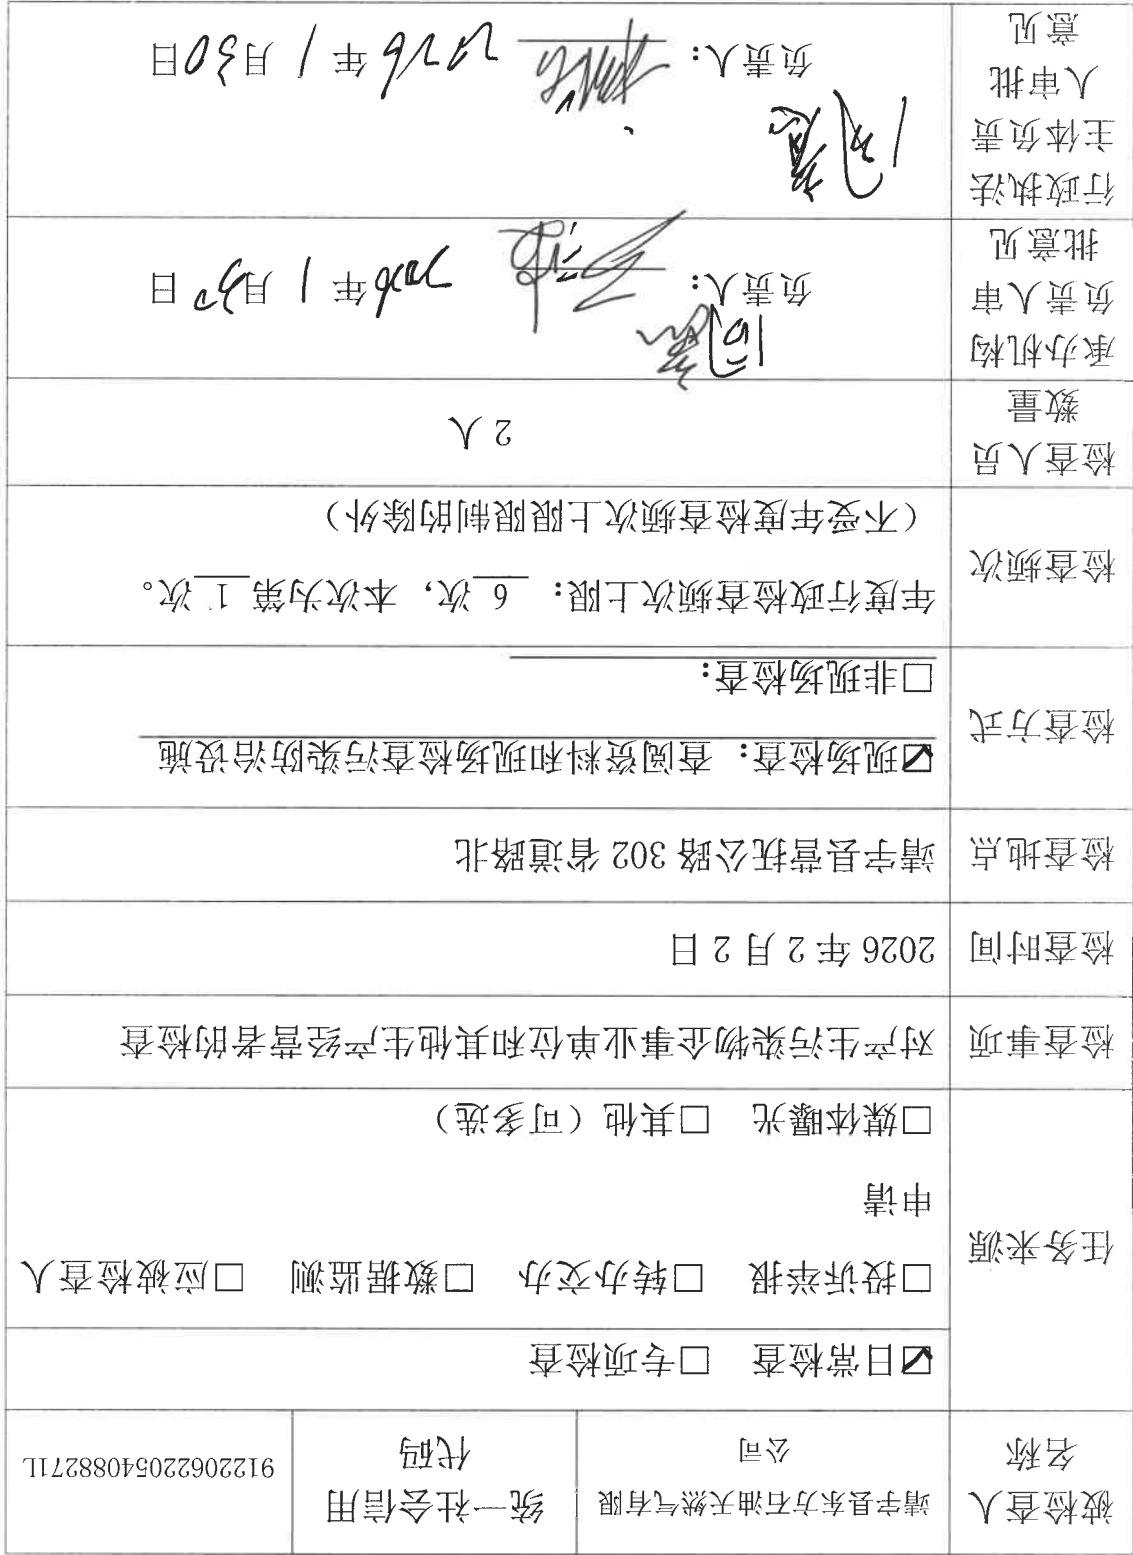 被检查人
名称
靖宇县东方石油天然气有限
公司
统一社会信用
代码
91220622054088271L
任务来源
☑日常检查 □专项检查
□投诉举报 □转办交办 □数据监测 □应被检查人
申请
□媒体曝光 □其他（可多选）
检查事项
对产生污染物企事业单位和其他生产经营者的检查
检查时间
2026 年 2 月 2 日
检查地点
靖宇县营抚公路 302 省道路北
检查方式
☑现场检查：查阅资料和现场检查污染防治设施
□非现场检查：
检查频次
年度行政检查频次上限： 6 次，本次为第 1 次。
（不受年度检查频次上限限制的除外）
检查人员
数量
2 人
承办机构
负责人审
批意见
同意
负责人：
2026 年 1 月 30 日
行政执法
主体负责
人审批
意见
同意
负责人：
2026 年 1 月 30 日